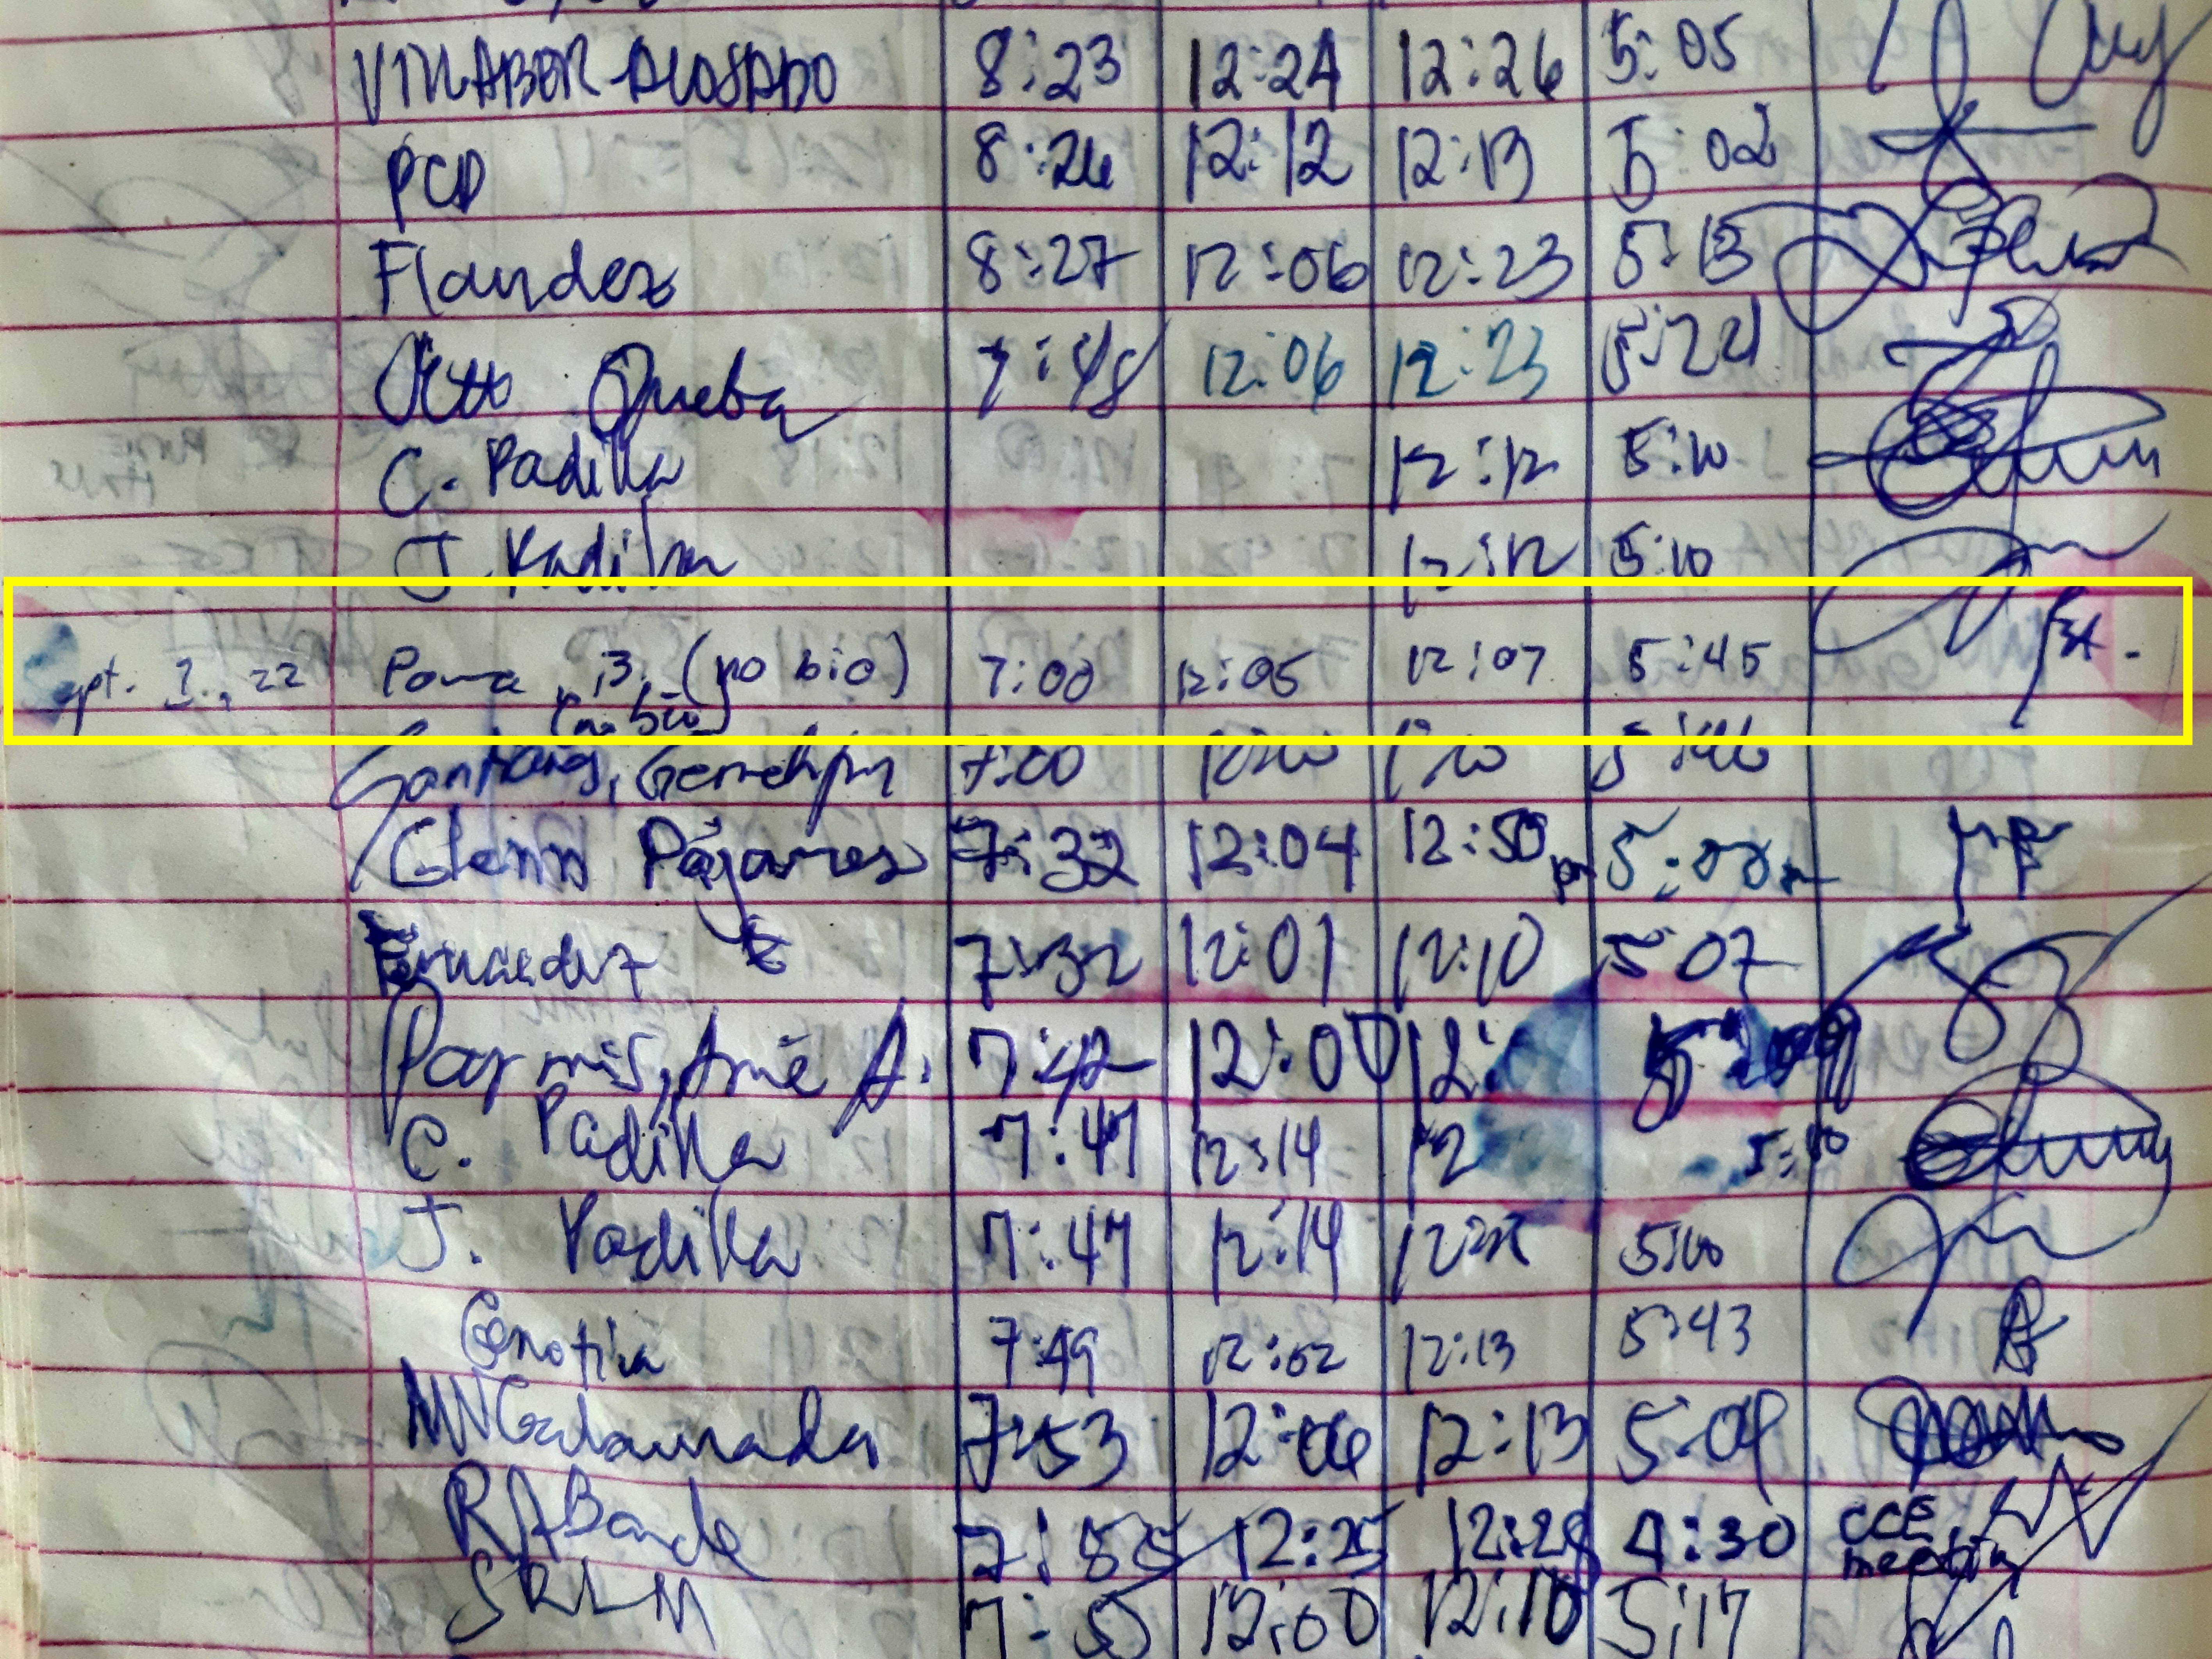 VILLABER ALOSADO 8:23 12:24 12:26 5:05
PCD 8:26 12:12 12:13 5:02
Flandez 8:27 12:06 12:23 5:13
Otto Queba 7:48 12:06 12:23 5:22
C. Padilla 12:12 5:10
J. Padilla 12:12 5:10
Sept. 22 Poma, B. (no bio) 7:00 12:05 12:07 5:45
(no bio)
7:00 5:46
Glenn Pajares 7:32 12:04 12:50 pm
7:32 12:01 12:10 5:07
7:42 12:00 12:
C. Padilla 7:47 12:14 12 5:10
J. Padilla 7:47 12:14 5:10
Genotiva 7:49 12:02 12:13 5:43
MN Galamada 7:53 12:06 12:13 5:09
RABande 7:55 12:25 12:28 4:30 CCE
meeting
SRLM 7:55 12:00 12:10 5:17